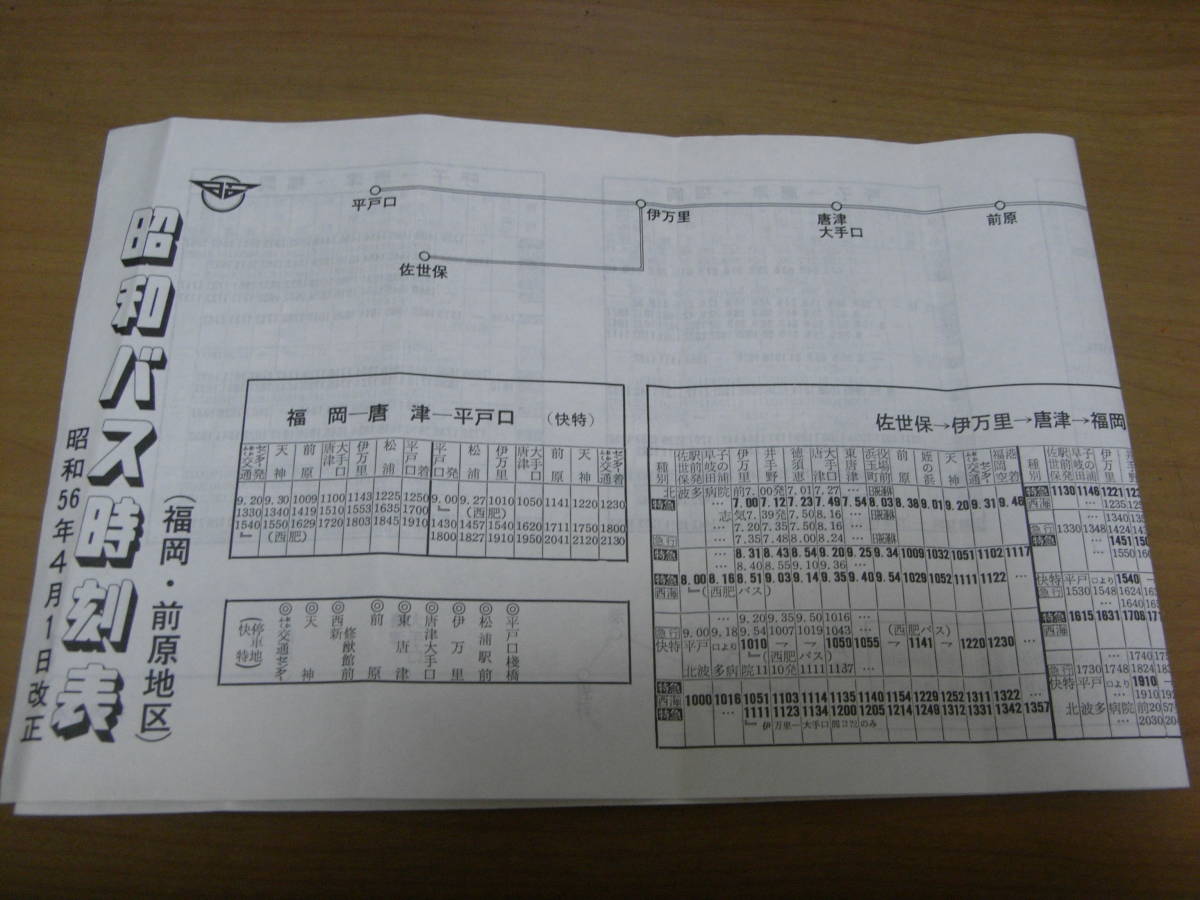 昭和バス時刻表
(福岡・前原地区)
昭和56年4月1日改正
平戸口
伊万里
唐津
大手口
前原
佐世保
福岡―唐津―平戸口 (快特)
交通センター発 天神 前原 唐津大手口 伊万里 松浦 平戸口着 平戸口発 松浦 伊万里 唐津大手口 前原 天神 交通センター着
9.20 9.30 1009 1100 1143 1225 1250 9.00 9.27 1010 1050 1141 1220 1230
1330 1340 1419 1510 1553 1635 1700 〃 (西肥)
1540 1550 1629 1720 1803 1845 1910 1430 1457 1540 1620 1711 1750 1800
〃 (西肥) 1800 1827 1910 1950 2041 2120 2130
(快特) 停車地
◎交通センター
◎天神
◎西新修猷館前
◎前原
◎東唐津
◎唐津大手口
◎伊万里
◎松浦駅前
◎平戸口桟橋
佐世保→伊万里→唐津→福岡
種別 佐世保駅前発 早岐田子の浦 伊万里 井手野 徳須恵 唐津大手口 東唐津 浜玉町役場前 前原 姪の浜 天神 交通センター 福岡空港着 種別 佐世保駅前発 早岐田子の浦 伊万里 井手野
北波多病院前7.00発 7.01 7.27 …
特急 … 7.00 7.12 7.23 7.49 7.54 8.03 8.38 9.01 9.20 9.31 9.48
志気7.39発 7.50 8.16 …
… 7.20 7.35 7.50 8.16 …
急行 … 7.35 7.48 8.00 8.24
特急 … 8.31 8.43 8.54 9.20 9.25 9.34 1009 1032 1051 1102 1117
… 8.40 8.55 9.10 9.36 …
特急 8.00 8.16 8.51 9.03 9.14 9.35 9.40 9.54 1029 1052 1111 1122 …
西海 〃 (西肥バス)
… 9.20 9.35 9.50 1016 …
急行 9.00 9.18 9.54 1007 1019 1043 … (西肥バス)
快特 平戸口より 1010 → 1050 1055 → 1141 → 1220 1230 …
〃 (西肥バス)
北波多病院 1110発 1111 1137 …
特急
西海 1000 1016 1051 1103 1114 1135 1140 1154 1229 1252 1311 1322 …
特急 … 1111 1123 1134 1200 1205 1214 1249 1312 1331 1342 1357
特急 1130 1146 1221
西海 … 1235
1340
急行 1330 1348 1424
特急 … 1451
… 1550
快特 平戸口より 1540
急行 1530 1548 1624
… 1640
特急 1615 1631 1708
西海
… 1740
急行 1730 1748 1824
快特 平戸口より 1910
… 1910
北波多病院前
… 2030